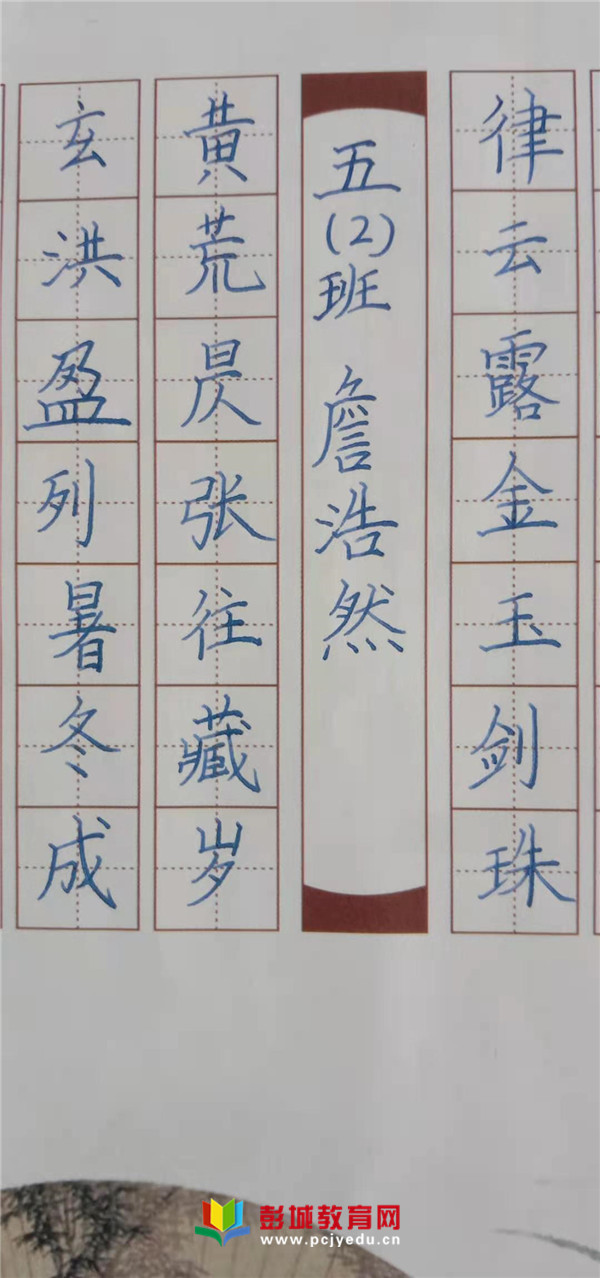 律云露金玉剑珠
五(2)班 詹浩然
黄荒昃张往藏岁
玄洪盈列暑冬成
彭城教育网
www.pcjyedu.cn